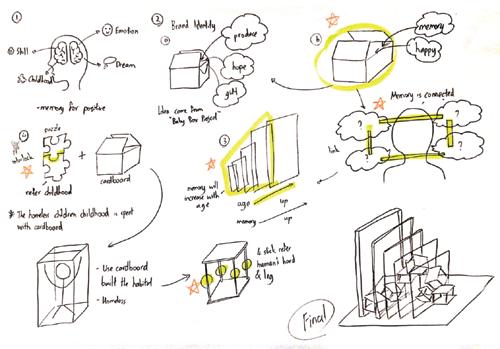 1
Emotion
Skill
Dream
Childhood
-memory for positive
2
Brand Identity
a
produce
hope
gift
Idea come from
"Baby Box Project"
b
memory
happy
Memory is connected
?
?
?
?
link
3
memory will
increase with
age
age up
memory up
4
puzzle
interlock
refer childhood
+
cardboard
* The homeless children childhood is spent
with cardboard
- Use cardboard
built the habitat
- Homeless
4 stick refer
human's hand
& leg
Final